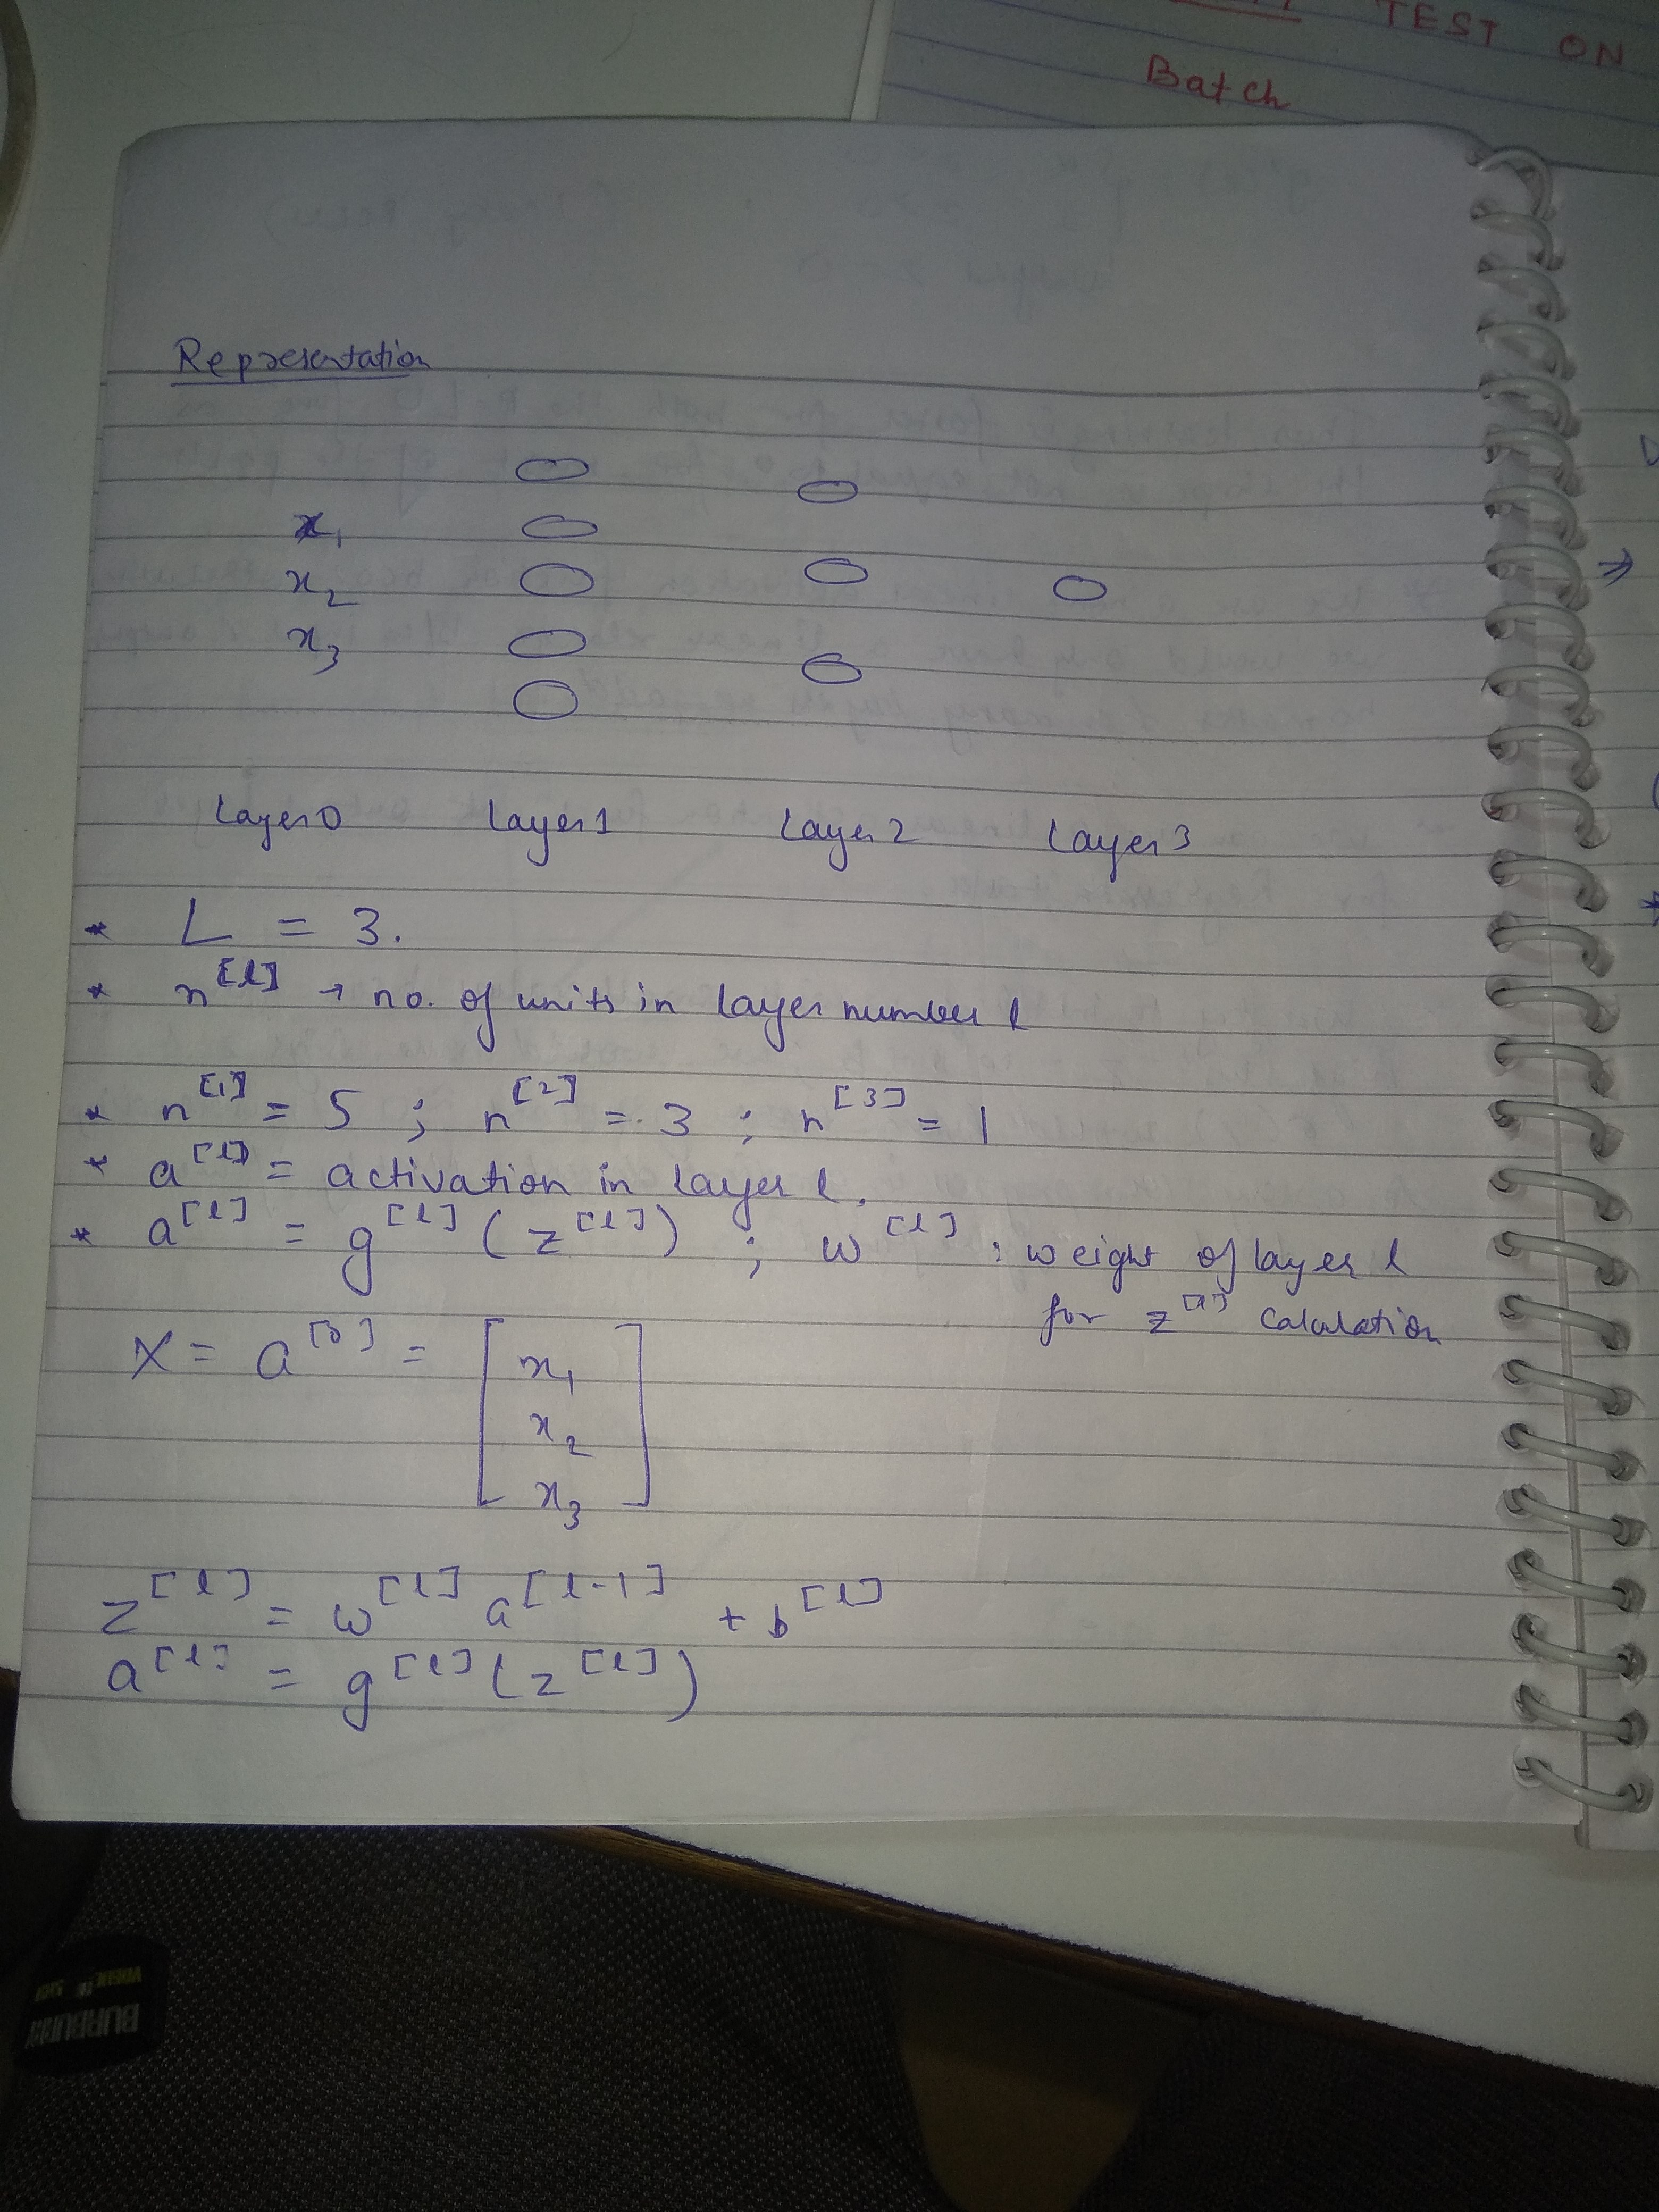 TEST ON
Batch
Representation
x1
x2
x3
Layer 0 Layer 1 Layer 2 Layer 3
* L = 3.
* n^[l] → no. of units in layer number l
* n^[1] = 5 ; n^[2] = 3 ; n^[3] = 1
* a^[l] = activation in layer l.
* a^[l] = g^[l] (z^[l]) ; w^[l] : weight of layer l
for z^[l] calculation
X = a^[0] = [x1
x2
x3]
z^[l] = w^[l] a^[l-1] + b^[l]
a^[l] = g^[l] (z^[l])
BURBURRY